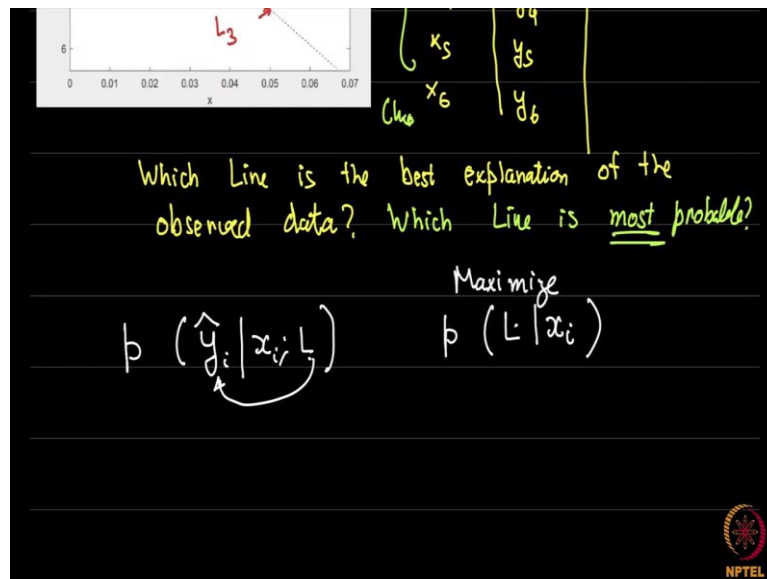 L3
6
0 0.01 0.02 0.03 0.04 0.05 0.06 0.07
x
x5 y5
x6 y6
Which Line is the best explanation of the
observed data? Which Line is most probable?
Maximize
p (ŷi | xi; L) p (L | xi)
NPTEL